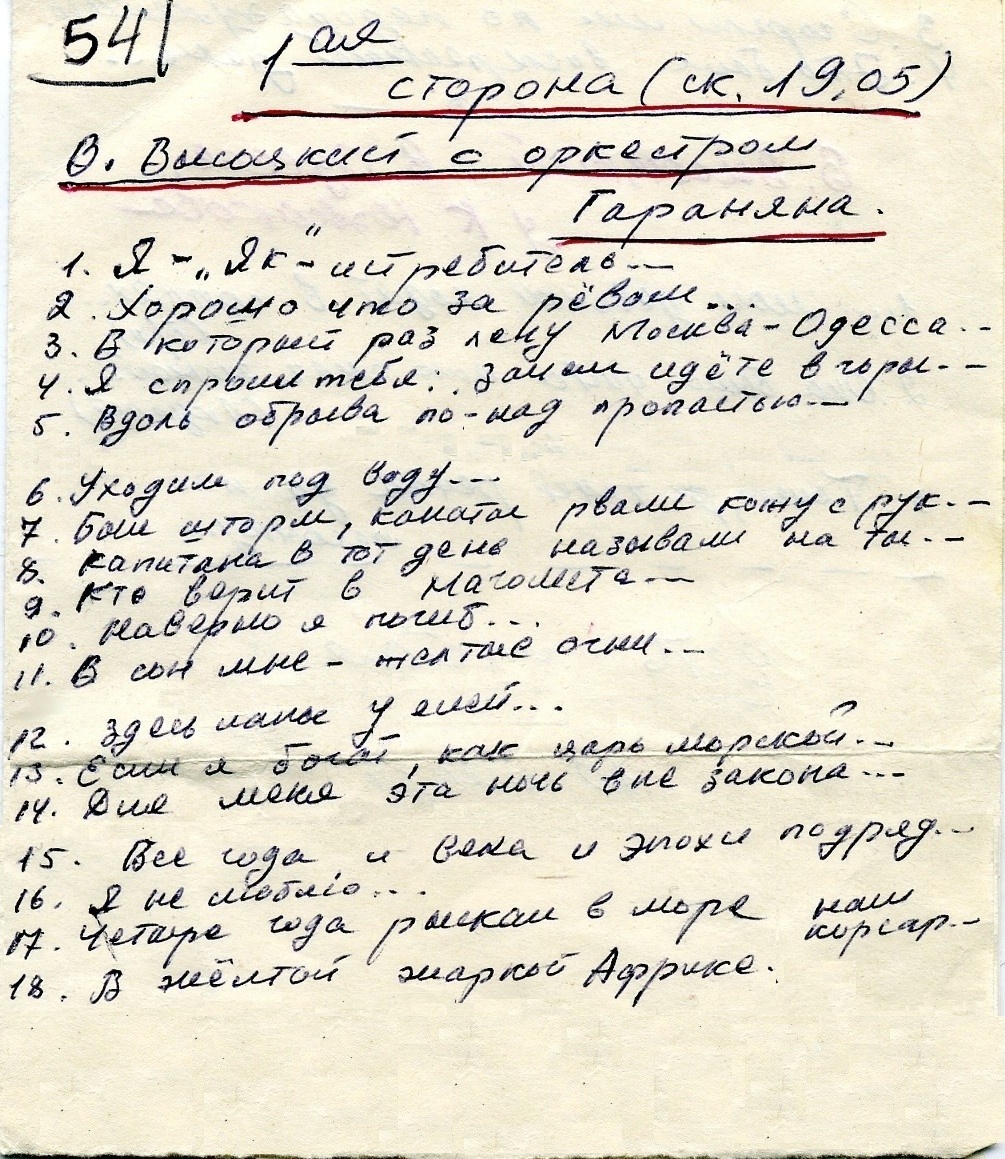 54
1 ая
сторона (ск. 19,05)
В. Высоцкий с оркестром
Гараняна.
1. Я - „Як"- истребитель...
2. Хорошо что за рёвом...
3. В который раз лечу Москва - Одесса...
4. Я спрошу тебя: зачем идёте в горы...
5. Вдоль обрыва по-над пропастью...
6. Уходим под воду...
7. Был шторм, канаты рвали кожу с рук...
8. Капитана в тот день называли на ты...
9. Кто верит в Магомета...
10. Наверно я погиб...
11. В сон мне - желтые огни...
12. Здесь лапы у елей...
13. Если я богат, как царь морской...
14. Для меня эта ночь вне закона...
15. Все года и века и эпохи подряд...
16. Я не люблю...
17. Четыре года рыскал в море наш
корсар...
18. В жёлтой жаркой Африке.